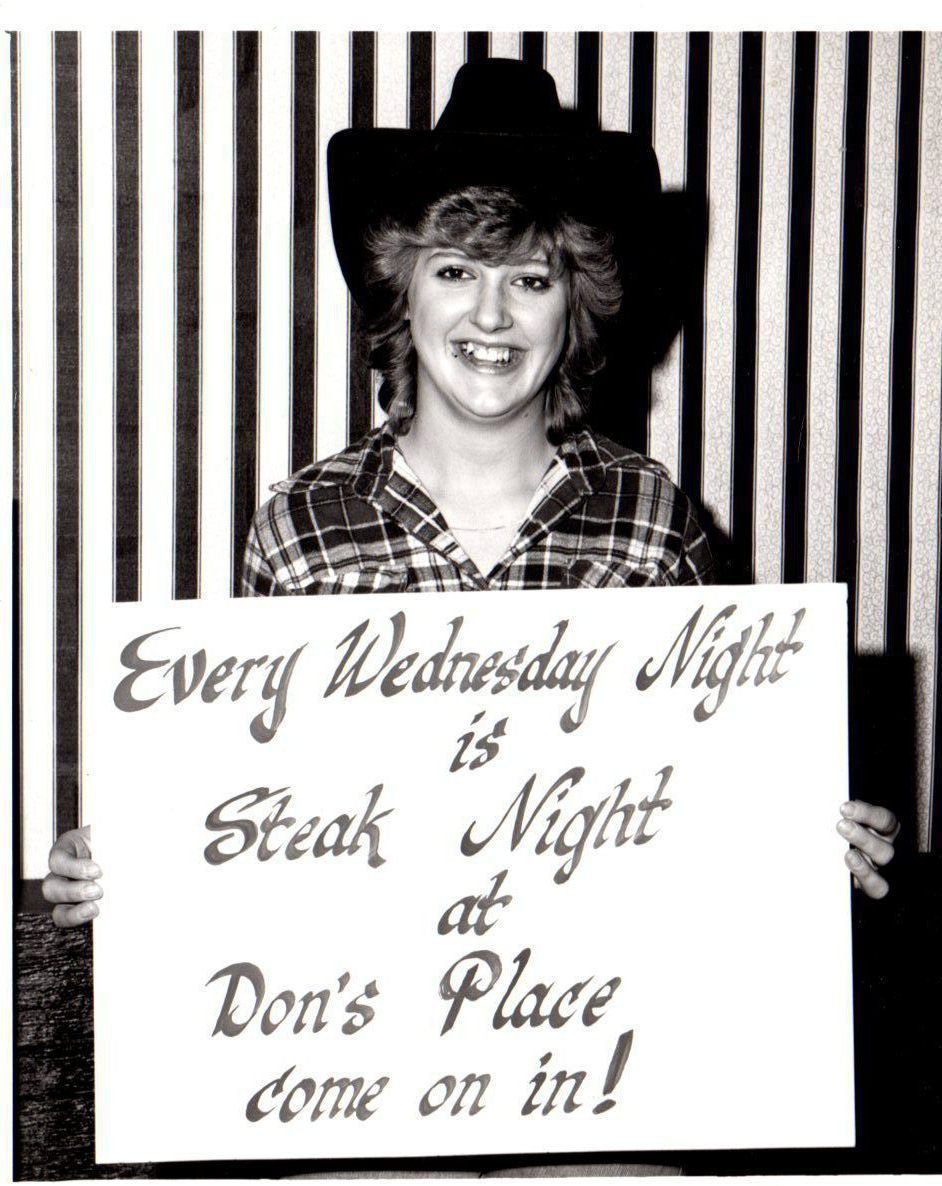 Every Wednesday Night
is
Steak Night
at
Don's Place
come on in!